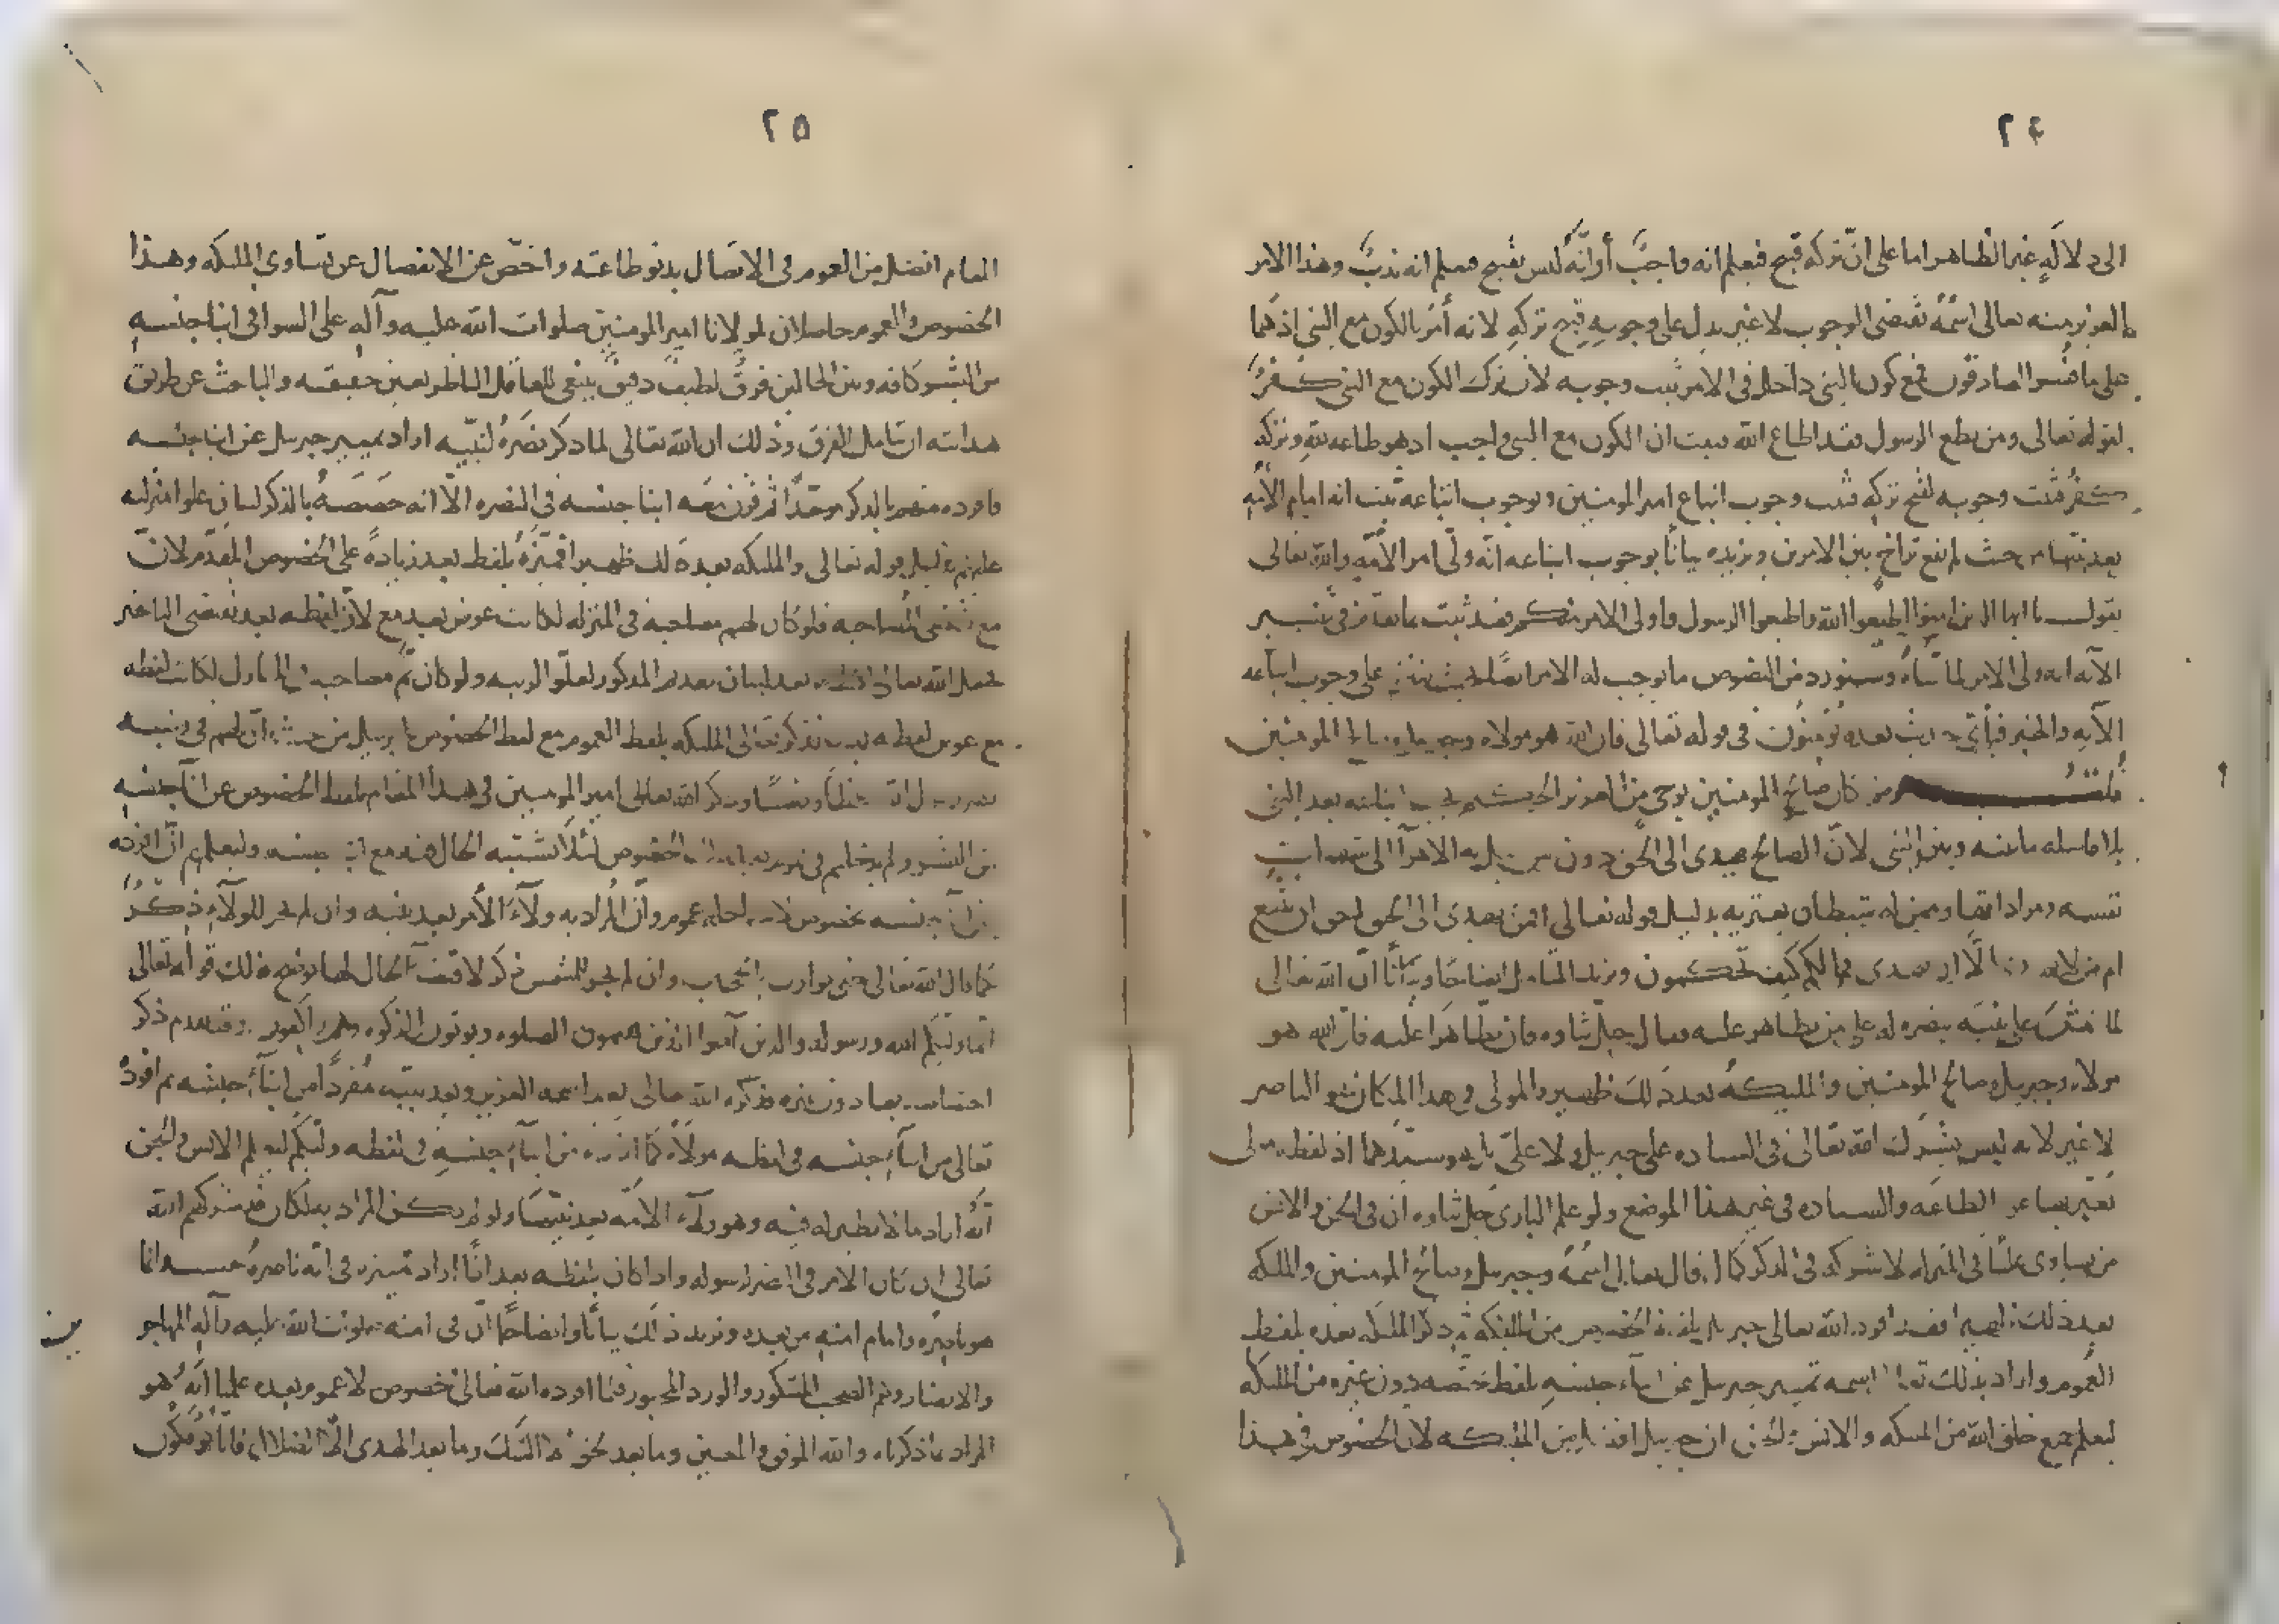 ٢٤
الى دلالة غير الظاهر اما على انّ تركه قبيح فيعلم انه واجبٌ أو انّه ليس بقبيح فيعلم انه ندبٌ وهذا الامر
العزيز منه تعالى اسمُهُ يقتضى الوجوب لا غير يدل على وجوبه قبح تركه لانه أمَر بالكون مع النبى اذ هما
على ما فُسّر الصادقون فمع كون النبى داخل فى الامر ثبت وجوبه لان ترك الكون مع النبى كفرٌ
لقوله تعالى ومن يطع الرسول فقد اطاع الله فثبت ان الكون مع النبى واجب اذ هو طاعه لله وتركه
كفرٌ فثبت وجوبه لقبح تركه فثبت وجوب اتباع امير المومنين وبوجوب اتباعه ثبت انه امام الأمّه
بعد نبيّها من حيث لم يقع تراخٍ بين الامرين ونزيده بيانًا بوجوب اتباعه انّه ولّى امر الأمّه والله تعالى
يقول يا ايها الذين امنوا اطيعوا الله واطيعوا الرسول واولى الامر منكم فقد ثبت بما تقدّم فى تفسير
الآيه انه ولى الامر لما بيّناه وسنورد من النصوص ما يوجب له الامر على وجوب اتباعه
الآيه والخبر فيأتى حديث بعده تؤمنون فى قوله تعالى فان الله هو مولاه وجبريل وصالح المومنين
قلتُ ومن كان صالح المومنين بوحى من الله يجب اتباعه بعد النبى
بلا فاصله ما بينه وبين النبى لانّ الصالح يهدى الى الحق دون
نفسه ومراداتها وممن له شيطان يعتريه بدليل قوله تعالى افمن يهدى الى الحق احق ان يتّبع
ام من لا يهدى الّا ان يهدى فما لكم كيف تحكمون ونزيد المتأمل ايضاحًا وبيانًا انّ الله تعالى
لما على نبيّه بنصره له على من يظاهر عليه فقال جلّ ثناوه وان تظاهَرا عليه فانّ الله هو
مولاه وجبريل وصالح المومنين والمليكة بعد ذَلكَ ظهير والمولى فى هذا المكان هو الناصر
لا غير لانه ليس يشرك الله تعالى فى العباده على جبريل ولا علىّ اذ لفظه مولى
تعبّر بها عن الطاعَه والسياده فى غير هذا الموضع ولو علم البارى جل ثناوه ان فى الجن والانس
من يساوى عليًّا فى المنزله لاشركه فى الذكر كما قال تعالى اسمُهُ وجبريل وصالح المومنين والمليكه
بعد ذلك ظهير فقد افرد الله تعالى جبريل بلفظة الخصوص من المليكه ثم ذكر المليكه بعده بلفظ
العموم واراد بذلك تعالى اسمه تمييز جبريل عن ابناء جنسهِ بلفظ خصّه دون غيره من المليكه
ليعلم جميع خلق الله من المليكه والانس والجن ان جبريل افضل من المليكه لان الخصوص فى هذا
٢٥
المقام افضل من العموم فى الاتصال بدنو طاعته واخصّ عن الانفصال عن تساوى المليكه وهذا
الخصوص والعموم حاصلان لمولانا امير المومنين صلوات الله عليه وآله على السوا فى ابنا جنسهِ
من البشر كافه وبين الحالين فرقٌ لطيفٌ دقيقٌ ينبغى للعاقل الناظر بعين حقيقته والباحث عن طريق
هدايته ان يتامل الفرق وذلك ان الله تعالى لما ذكر نصرَهُ لنبيّه اراد تمييز جبريل عن ابنا جنسه
فافرده منهم بالذكر موحّدًا ثم قرن معه ابنا جنسه فى النصره الاّ انه خصّصَهُ بالذكر لبيان علوا منزلته
عليهم بدليل قوله تعالى والمليكه بعد ذلك ظهير فميّزَهُ بلفظ بعد زيادةً على الخصوص المقدّم لانّ
مع تقتضى المُصاحبه فلو كان لهم مصاحبه فى المنزله لكانت عوض بعد مع لانّ لفظه بعد تقتضى التاخير
فجعل الله تعالى لفظه بعد لبيان تقدم المذكور لعلوّ الرتبه ولو كان ثَمّ مصاحبه فى المنازل لكانت لفظه
مع عوض لفظه بعد فذكر تعالى المليكه بلفظ العموم مع لفظ الخصوص لجبريل من حيث انّ لهم فى رتبته
وذكر الله تعالى امير المومنين فى هذا المقام بلفظ الخصوص عن ابنآ جنسهِ
من البشر ولم يدخلهم فى الخصوص لئلّا يشتبه الحال فيه مع ابنآ جنسه وليعلمهم انّ افرده
من ابنآ جنسه بخصوص عموم وانّ المُراد به ولآءَ الأمر بعد نبيه وان لم يجر للولآءِ ذِكرٌ
كما قال الله تعالى حتى توارت بالحجاب وان لم يجر للشمس ذكر لاقتضآ الحال لها يوضح ذلك قوله تعالى
انما وليّكم الله ورسوله والذين آمنوا الذين يقيمون الصلوه ويوتون الزكوه وهم راكعون وقد تقدم ذكر
اختصاصه بها دون غيره فذكره الله تعالى بعد اسمه العزيز وبعد نبيّه مُفردًا من ابنآءِ جنسه ثم افرده
تعالى من ابنآءِ جنسه فى لفظه مولاه كما افرده من ابنآءِ جنسهِ فى لفظه وليّكم ليعلم الانس والجن
انّه اراد ما لا نظير له فيه وهو ولآء الامّه بعد نبيّها ولو لم يكن المراد به لكان قد شركهم الله
تعالى ان كان الامر فى النصر لرسوله واذا كان بلفظه بعد انّما اراد تميزه فى انّه ناصرهُ حسب وانما
هو ناصره وامام امته من بعده ونزيد ذَلك بيانًا وايضاحًا انّ فى امته صلوات الله عليه وآله المهاجر
والانصار وثَم الصحب المشكور والورد المحبور فلمّا افرده الله تعالى خصوص لا عموم بعده علمنا انّهُ هو
المراد بما ذكرناه والله الموفق والمعين وما بعد الحق الا الشك وما بعد الهدى الّا الضلال فانّا توفكون